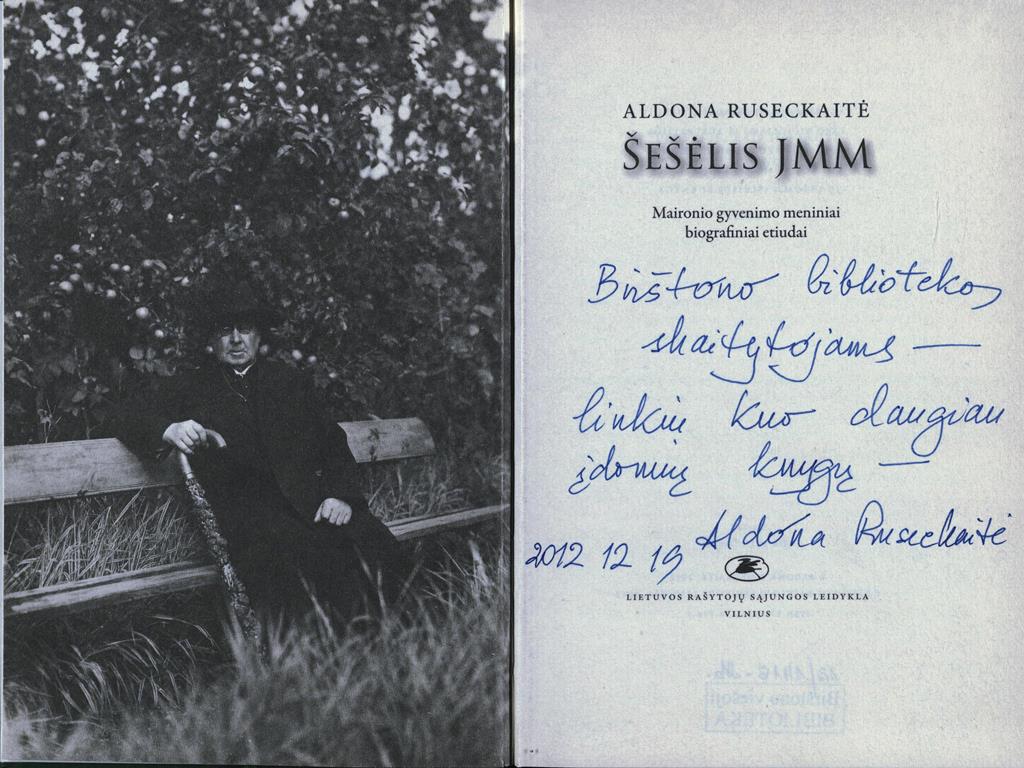 ALDONA RUSECKAITĖ
ŠEŠĖLIS JMM
Maironio gyvenimo meniniai
biografiniai etiudai
Birštono bibliotekos
skaitytojams —
linkiu kuo daugiau
įdomių knygų —
Aldona Ruseckaitė
2012 12 19
LIETUVOS RAŠYTOJŲ SĄJUNGOS LEIDYKLA
VILNIUS